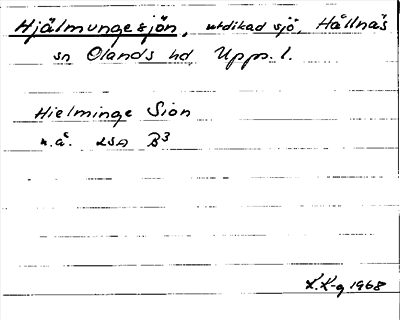 Hjälmungesjön, utdikad sjö, Hållnäs
sn Olands hd, Upps. l.
Hielminge Sion
n.å. LSA B3
K.K-g 1968